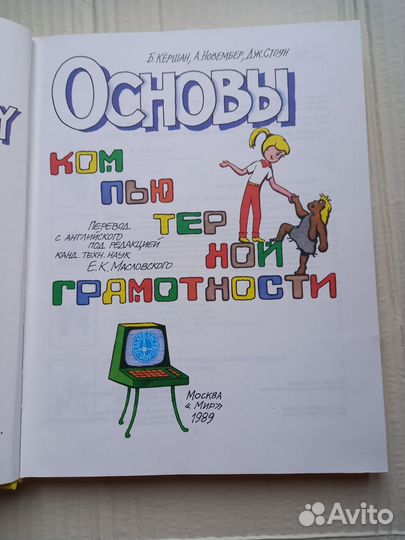 Б. КЁРШАН, А. НОВЕМБЕР, ДЖ. СТОУН
ОСНОВЫ
КОМ
ПЬЮ
ТЕР
НОЙ
ГРАМОТНОСТИ
ПЕРЕВОД
С АНГЛИЙСКОГО
ПОД РЕДАКЦИЕЙ
КАНД. ТЕХН. НАУК
Е. К. МАСЛОВСКОГО
МОСКВА
«МИР»
1989
Y
Avito